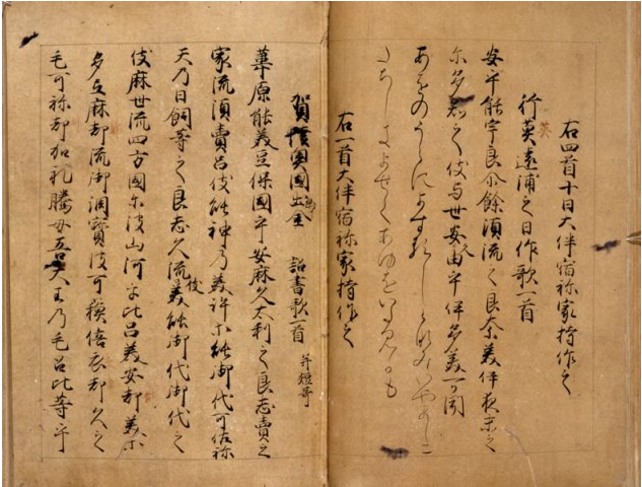 右四首十日大伴宿祢家持作之
行英遠浦之日作歌一首
安乎能宇良尓餘須流之良奈美伊夜末之
尓多知之伎与世久安由乎伊多美可聞
あをのうらによするしらなみいやましに
たちしきよせくあゆをいたみかも
右一首大伴宿祢家持作之
賀陸奥國出金 詔書歌一首 并短哥
葦原能美豆保國乎安麻久太利之良志賣之
家流須賣呂伎能神乃美許等能御代可佐祢
天乃日嗣等之良志久流伎美能御代御代之
伎麻世流四方國尓波山河乎比呂美安都美等
多弖麻都流御調寶波可蘇倍衣都久之
毛可祢都加祢騰母吾大王乃毛呂比等乎